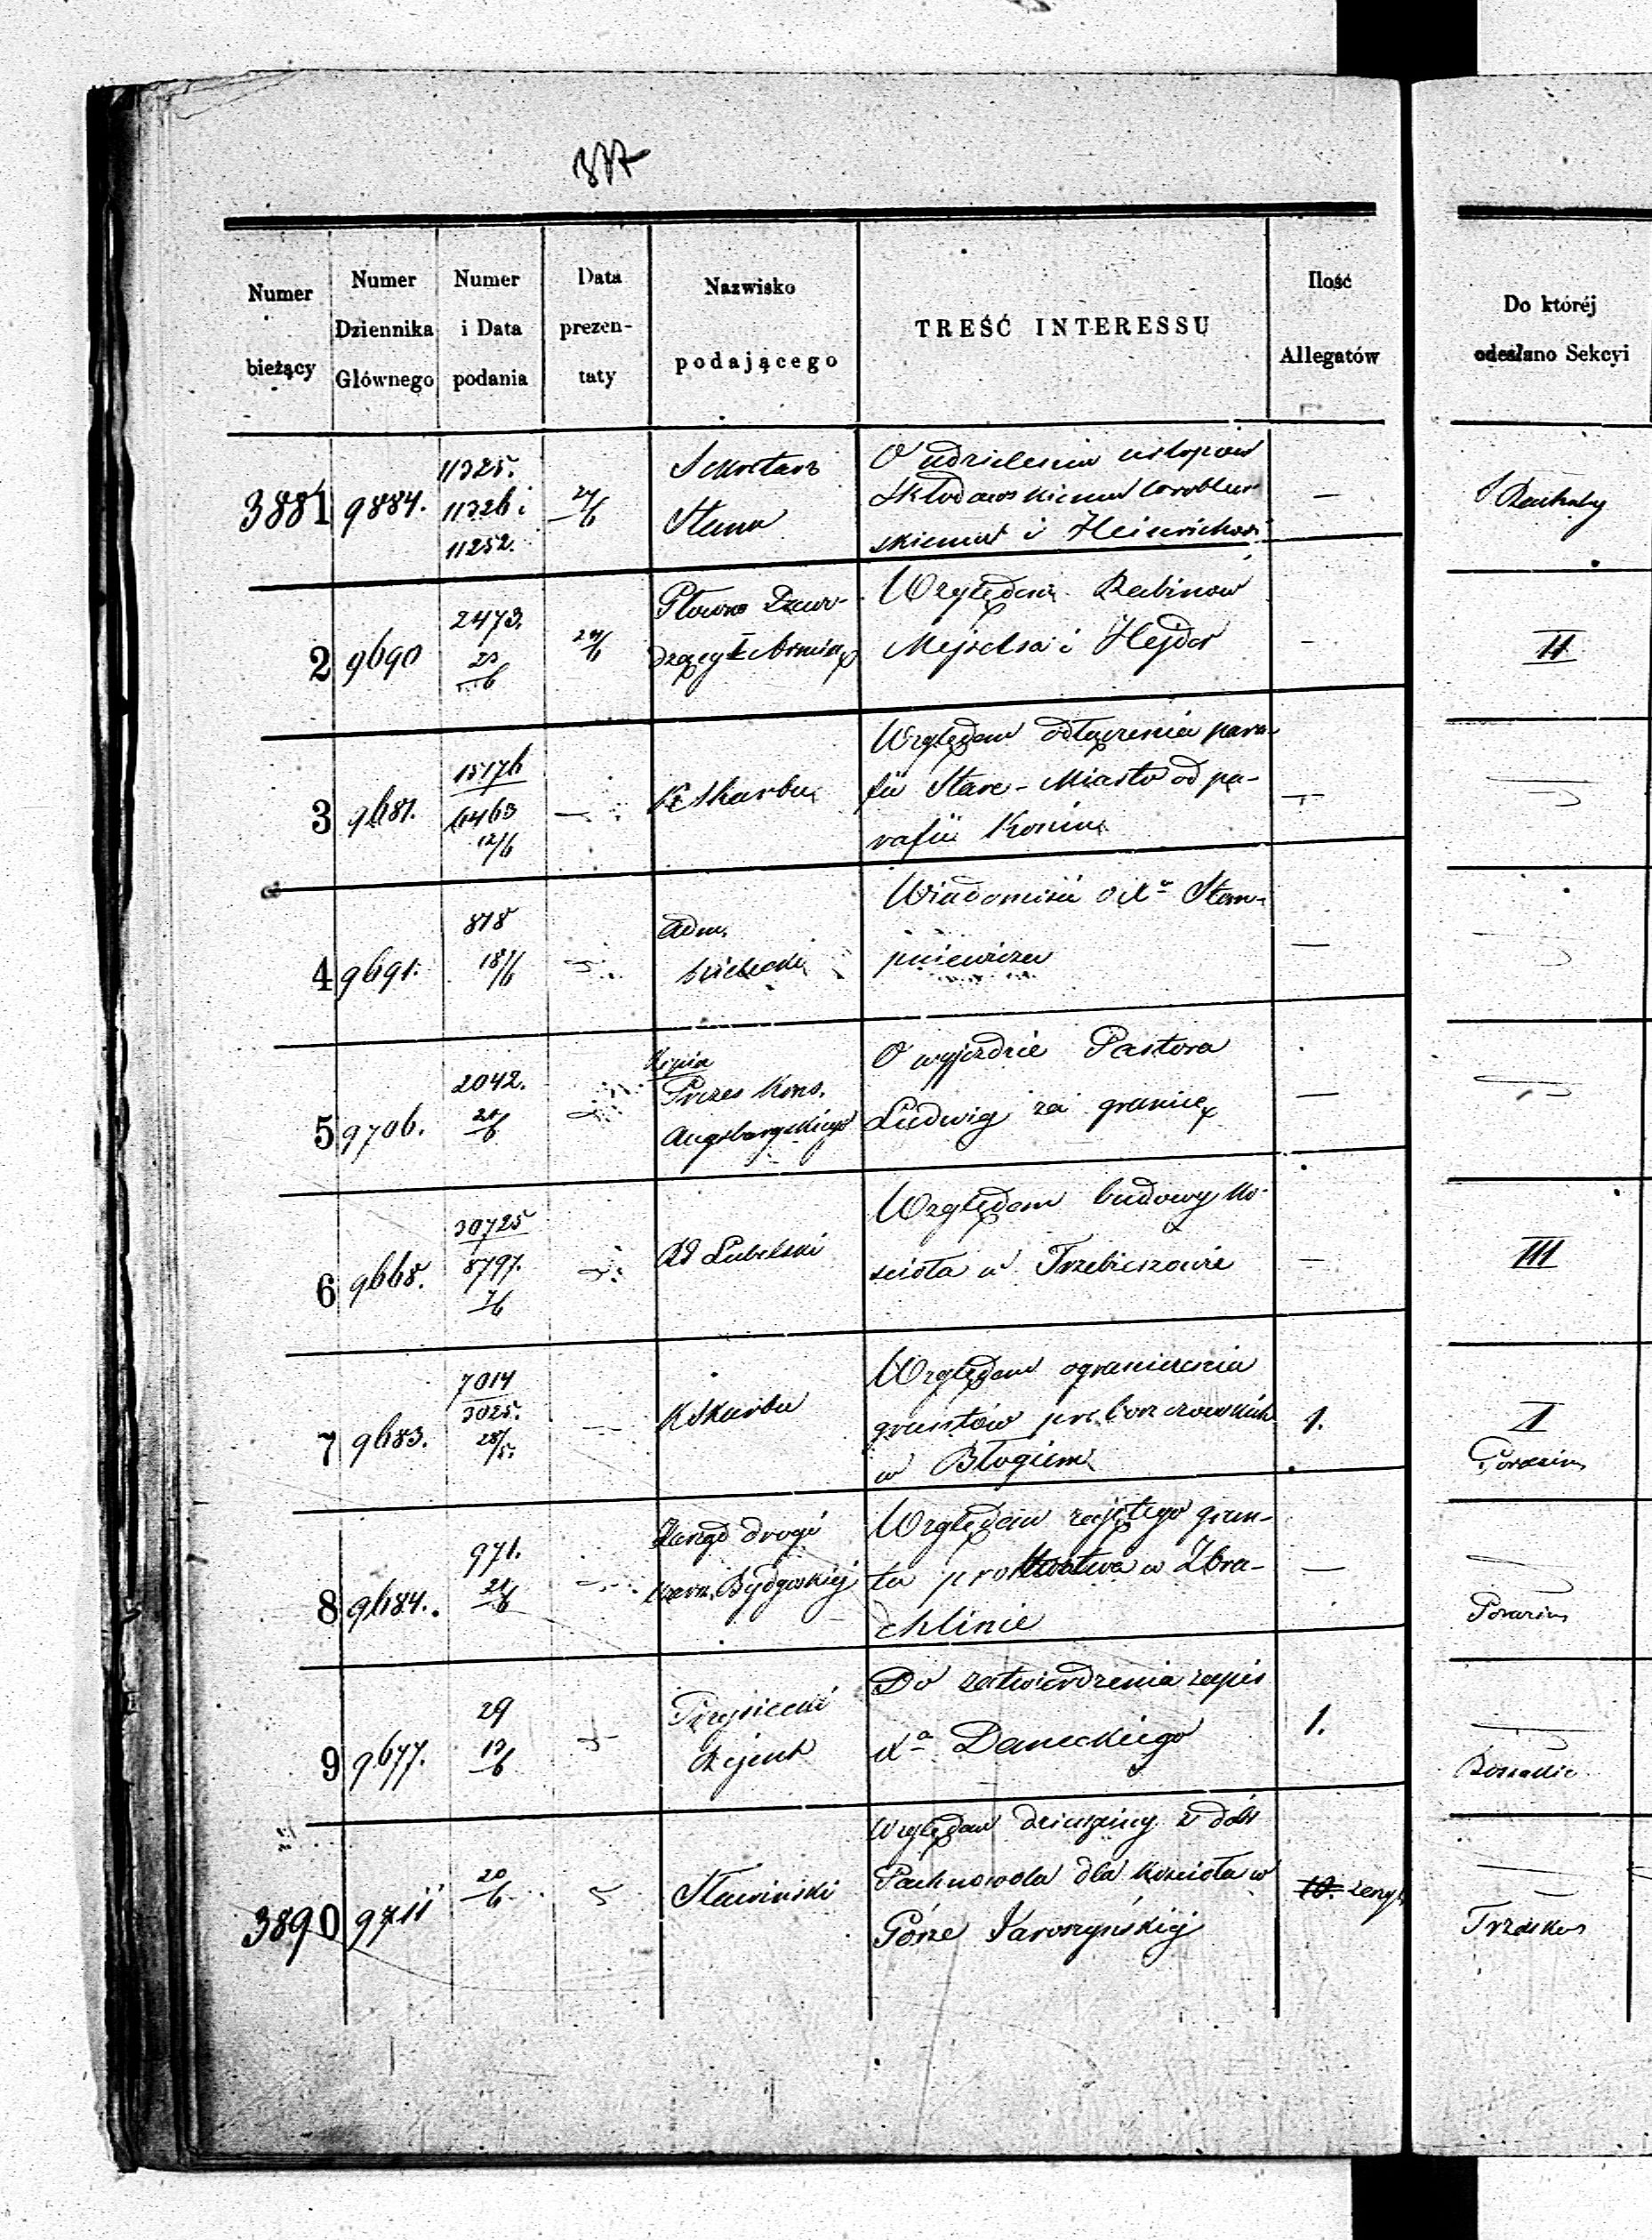 377
Numer bieżący
Numer Dziennika Głównego
Numer i Data podania
Data prezentaty
Nazwisko podającego
TREŚĆ INTERESSU
Ilość Allegatów
Do któréj odesłano Sekcyi
3881 9884. 11325. 11326 i 11252. 24/6
Sekretarz
Stanu
O udzielenie
Skłodowskiemu
skiemu i Heinrichowi
—
2 9690 2473. 23/6 24/6
Główno Zawr-
dzający I Armią
Względem Rabinów
Mejselsa i Hejdor
—
II
3 9687. 15176 6463 12/6 —
K Skarbu
Względem odłączenia para-
fii Stare-Miasto od pa-
rafii Konin
—
4 9691. 818 18/6
Adm.
Kielecki
Wiadomość o Xu Stem-
pniewiczu
—
5 9706. 2042. 21/6
Kopia
Prezes Kons.
Augsburgskiego
O wyjezdzie Pastora
Ludwig za granicę
—
6 9668. 30725 8797. 7/6
Rd Lubelski
Względem budowy ko-
scioła w Trzebieszowie
—
III
7 9683. 7014 3025. 28/5. —
K Skarbu
Względem ograniczenia
gruntów proboszczowskich
w Błogiem
1.
II
8 9684. 971. 21/6
Zarząd drogi
Warsz. Bydgoskiej
Względem zajętego grun-
tu probostwa w Zbra-
chlinie
—
9 9677. 29 19/6
Przysiecki
Rejent
Do zatwierdzenia zapis
Xa Daneckiego
1.
3890 9711 20/6
Sławiński
Względem dziesięciny z dóbr
Pachnowola dla kościoła w
Górze Jaroszyńskiej